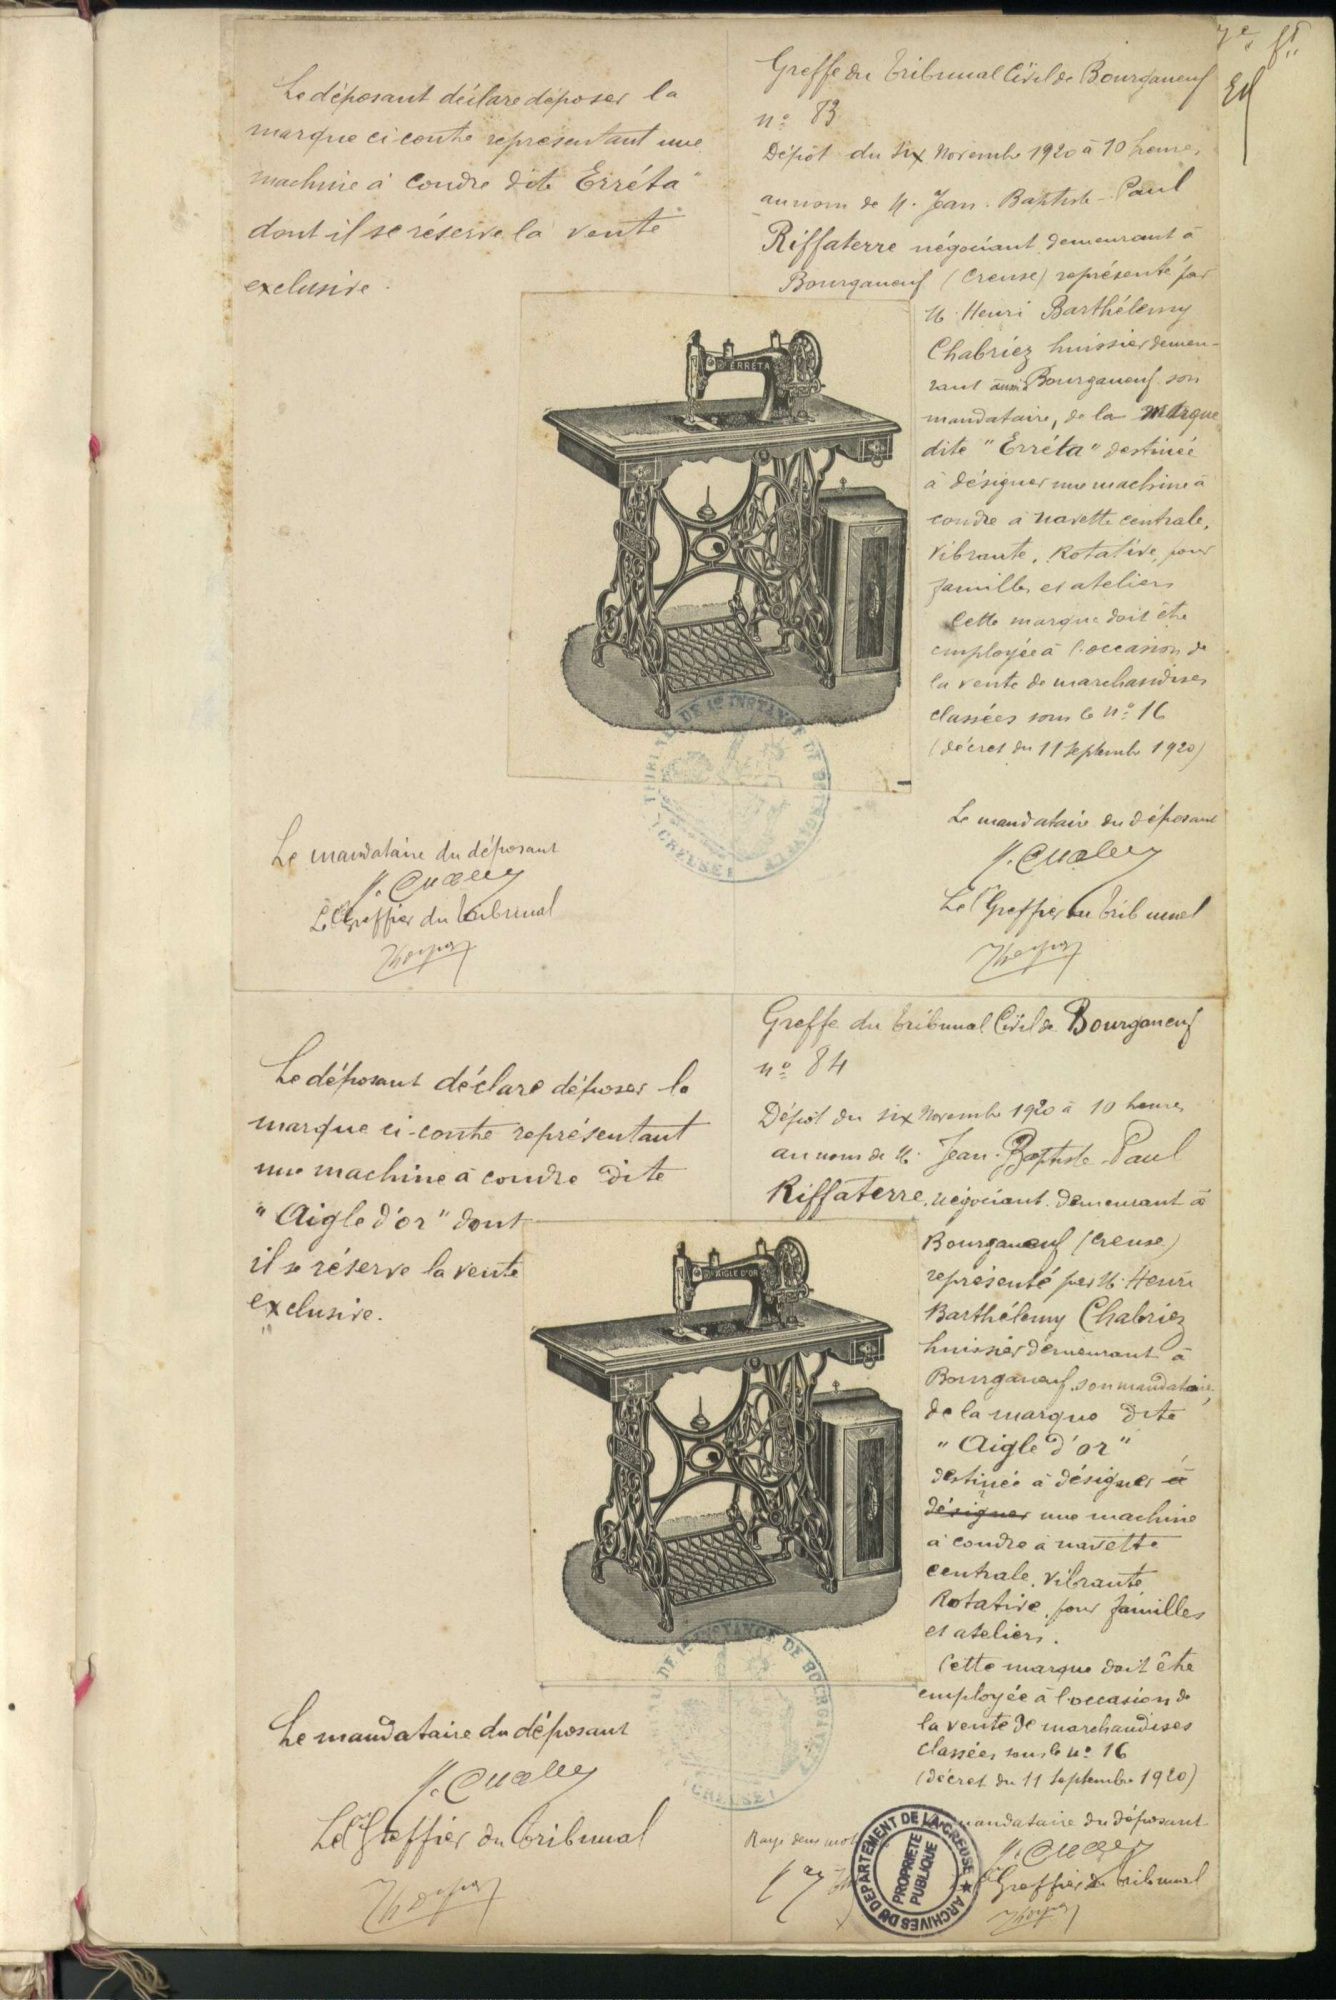 Le déposant déclare déposer la
marque ci contre représentant une
machine à coudre dite Erréta"
dont il se réserve la vente
exclusive.
Greffe du Tribunal Civil de Bourganeuf
n° 83
Dépôt du six Novembre 1920 à 10 heures
au nom de M. Jean-Baptiste-Paul
Riffaterre négociant demeurant à
Bourganeuf (Creuse) représenté par
M. Henri Barthélemy
Chabriez huissier demeu-
rant aussi Bourganeuf son
mandataire, de la marque
dite "Erréta" destinée
à désigner une machine à
coudre à navette centrale,
vibrante, Rotative, pour
familles et ateliers
Cette marque doit être
employée à l'occasion de
la vente de marchandises
classées sous le n° 16
(décret du 11 septembre 1920)
ERRÉTA
TRIBUNAL DE 1re INSTANCE DE BOURGANEUF
(CREUSE)
Le mandataire du déposant
Le Greffier du tribunal
Le mandataire du déposant
Le Greffier du tribunal
Le déposant déclare déposer la
marque ci-contre représentant
une machine à coudre dite
"Aigle d'or" dont
il se réserve la vente
exclusive.
Greffe du tribunal Civil de Bourganeuf
n° 84
Dépôt du six Novembre 1920 à 10 heures
au nom de M. Jean-Baptiste-Paul
Riffaterre, négociant demeurant à
Bourganeuf (Creuse)
représenté par M. Henri
Barthélemy Chabriez
huissier demeurant à
Bourganeuf son mandataire,
de la marque dite
"Aigle d'or"
destinée à désigner à
désigner une machine
à coudre à navette
centrale, vibrante
Rotative, pour familles
et ateliers.
Cette marque doit être
employée à l'occasion de
la vente de marchandises
classées sous le n° 16
(décret du 11 septembre 1920)
AIGLE D'OR
DE 1re INSTANCE DE BOURGANEUF
(CREUSE)
Le mandataire du déposant
Le Greffier du tribunal
mandataire du déposant
Greffier du tribunal
Rayé deux mots
ARCHIVES DU DÉPARTEMENT DE LA CREUSE
PROPRIÉTÉ
PUBLIQUE